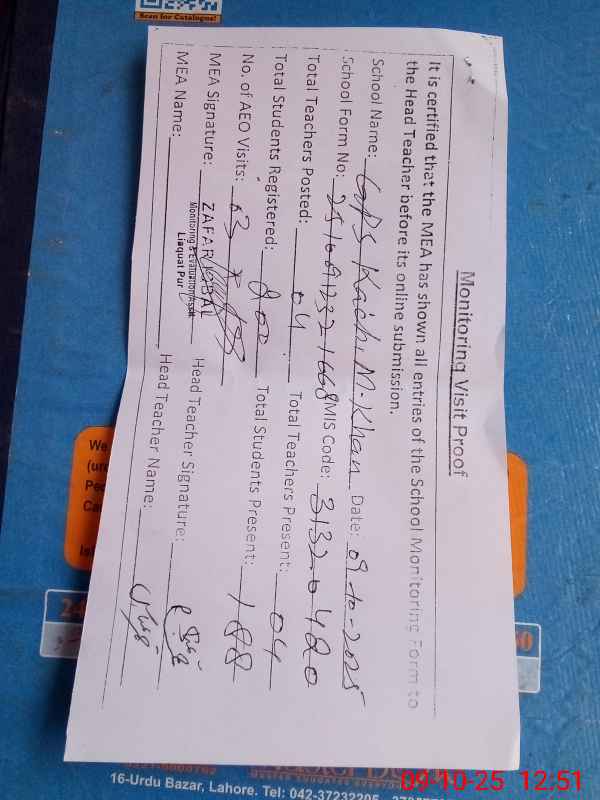 Scan for Catalogue!
Monitoring Visit Proof
It is certified that the MEA has shown all entries of the School Monitoring Form to
the Head Teacher before its online submission.
School Name: GPS Kachi M. Khan Date: 09-10-2025
School Form No: MIS Code: 31320420
Total Teachers Posted: 04 Total Teachers Present: 04
Total Students Registered: 200 Total Students Present: 188
No. of AEO Visits: 03
MEA Signature: Head Teacher Signature:
MEA Name: Head Teacher Name:
ZAFAR IQBAL
Monitoring & Evaluation Asstt
Liaquat Pur
We
16-Urdu Bazar, Lahore. Tel: 042-37232205
09-10-25 12:51